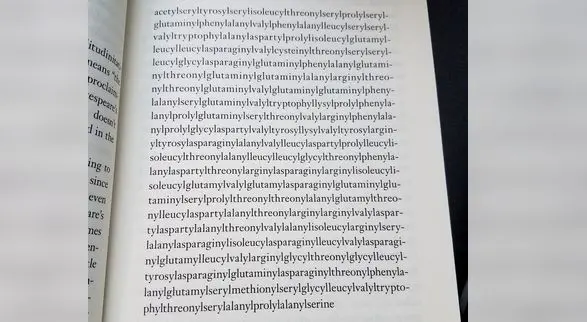 acetylseryltyrosylserylisoleucylthreonylserylprolylseryl-
glutaminylphenylalanylvalylphenylalanylleucylserylseryl-
valyltryptophylalanylaspartylprolylisoleucylglutamyl-
leucylleucylasparaginylvalylcysteinylthreonylserylseryl-
leucylglycylasparaginylglutaminylphenylalanylglutami-
nylthreonylglutaminylglutaminylalanylarginylthreo-
nylthreonylglutaminylvalylglutaminylglutaminylpheny-
lalanylserylglutaminylvalyltryptophyllysylprolylphenyla-
lanylprolylglutaminylserylthreonylvalylarginylphenylala-
nylprolylglycylaspartylvalyltyrosyllysylvalyltyrosylargin-
yltyrosylasparaginylalanylvalylleucylaspartylprolylleucyli-
soleucylthreonylalanylleucylleucylglycylthreonylphenyla-
lanylaspartylthreonylarginylasparaginylarginylisoleucyli-
soleucylglutamylvalylglutamylasparaginylglutaminylglu-
taminylserylprolylthreonylthreonylalanylglutamylthreo-
nylleucylaspartylalanylthreonylarginylarginylvalylaspar-
tylaspartylalanylthreonylvalylalanylisoleucylarginylsery-
lalanylasparaginylisoleucylasparaginylleucylvalylasparagi-
nylglutamylleucylvalylarginylglycylthreonylglycylleucyl-
tyrosylasparaginylglutaminylasparaginylthreonylphenyla-
lanylglutamylserylmethionylserylglycylleucylvalyltrypto-
phylthreonylserylalanylprolylalanylserine
means "the
proclaims
doesn't
in the
to
since
even